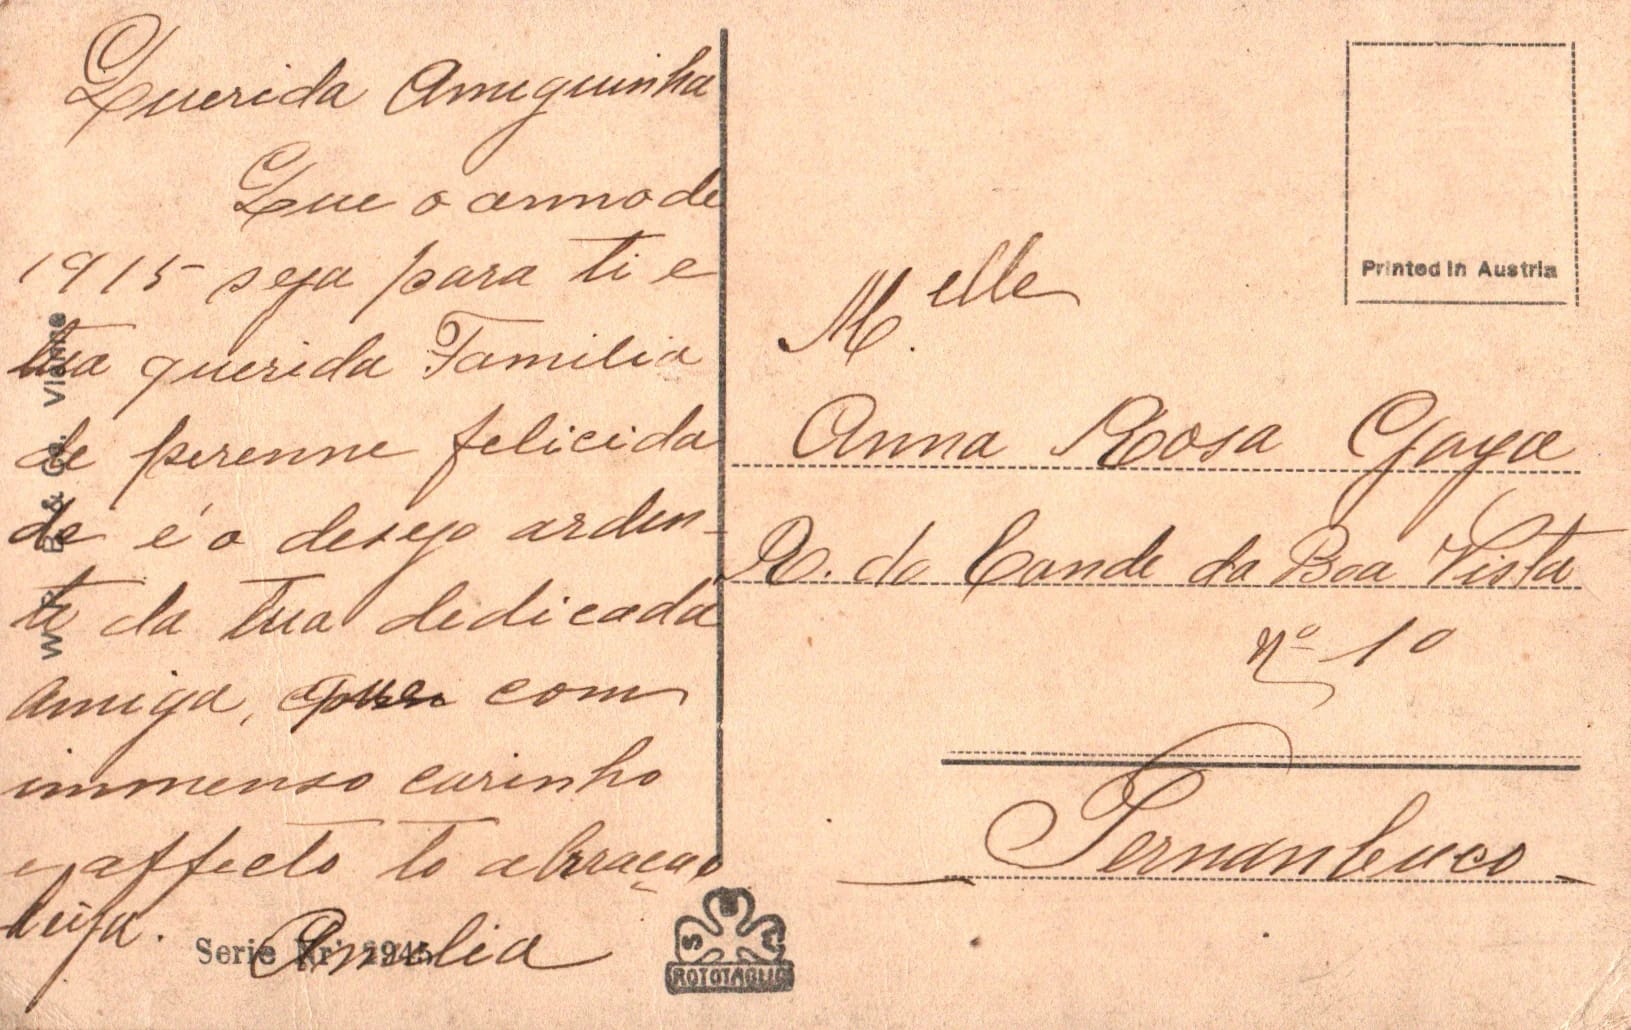 Querida Amiguinha
Que o anno de
1915 seja para ti e
tua querida Familia
de perenne felicida
de é o desejo arden-
te da tua dedicada
amiga, que com
immenso carinho
e affecto te abraça e
beija.
Amelia
Serie Nr. 2945
W. R. B. & Co. Vienne
ROTOTAGLIO
Printed in Austria
M.elle
Anna Rosa Gaya
R. do Conde da Boa Vista
nº 10
Pernambuco